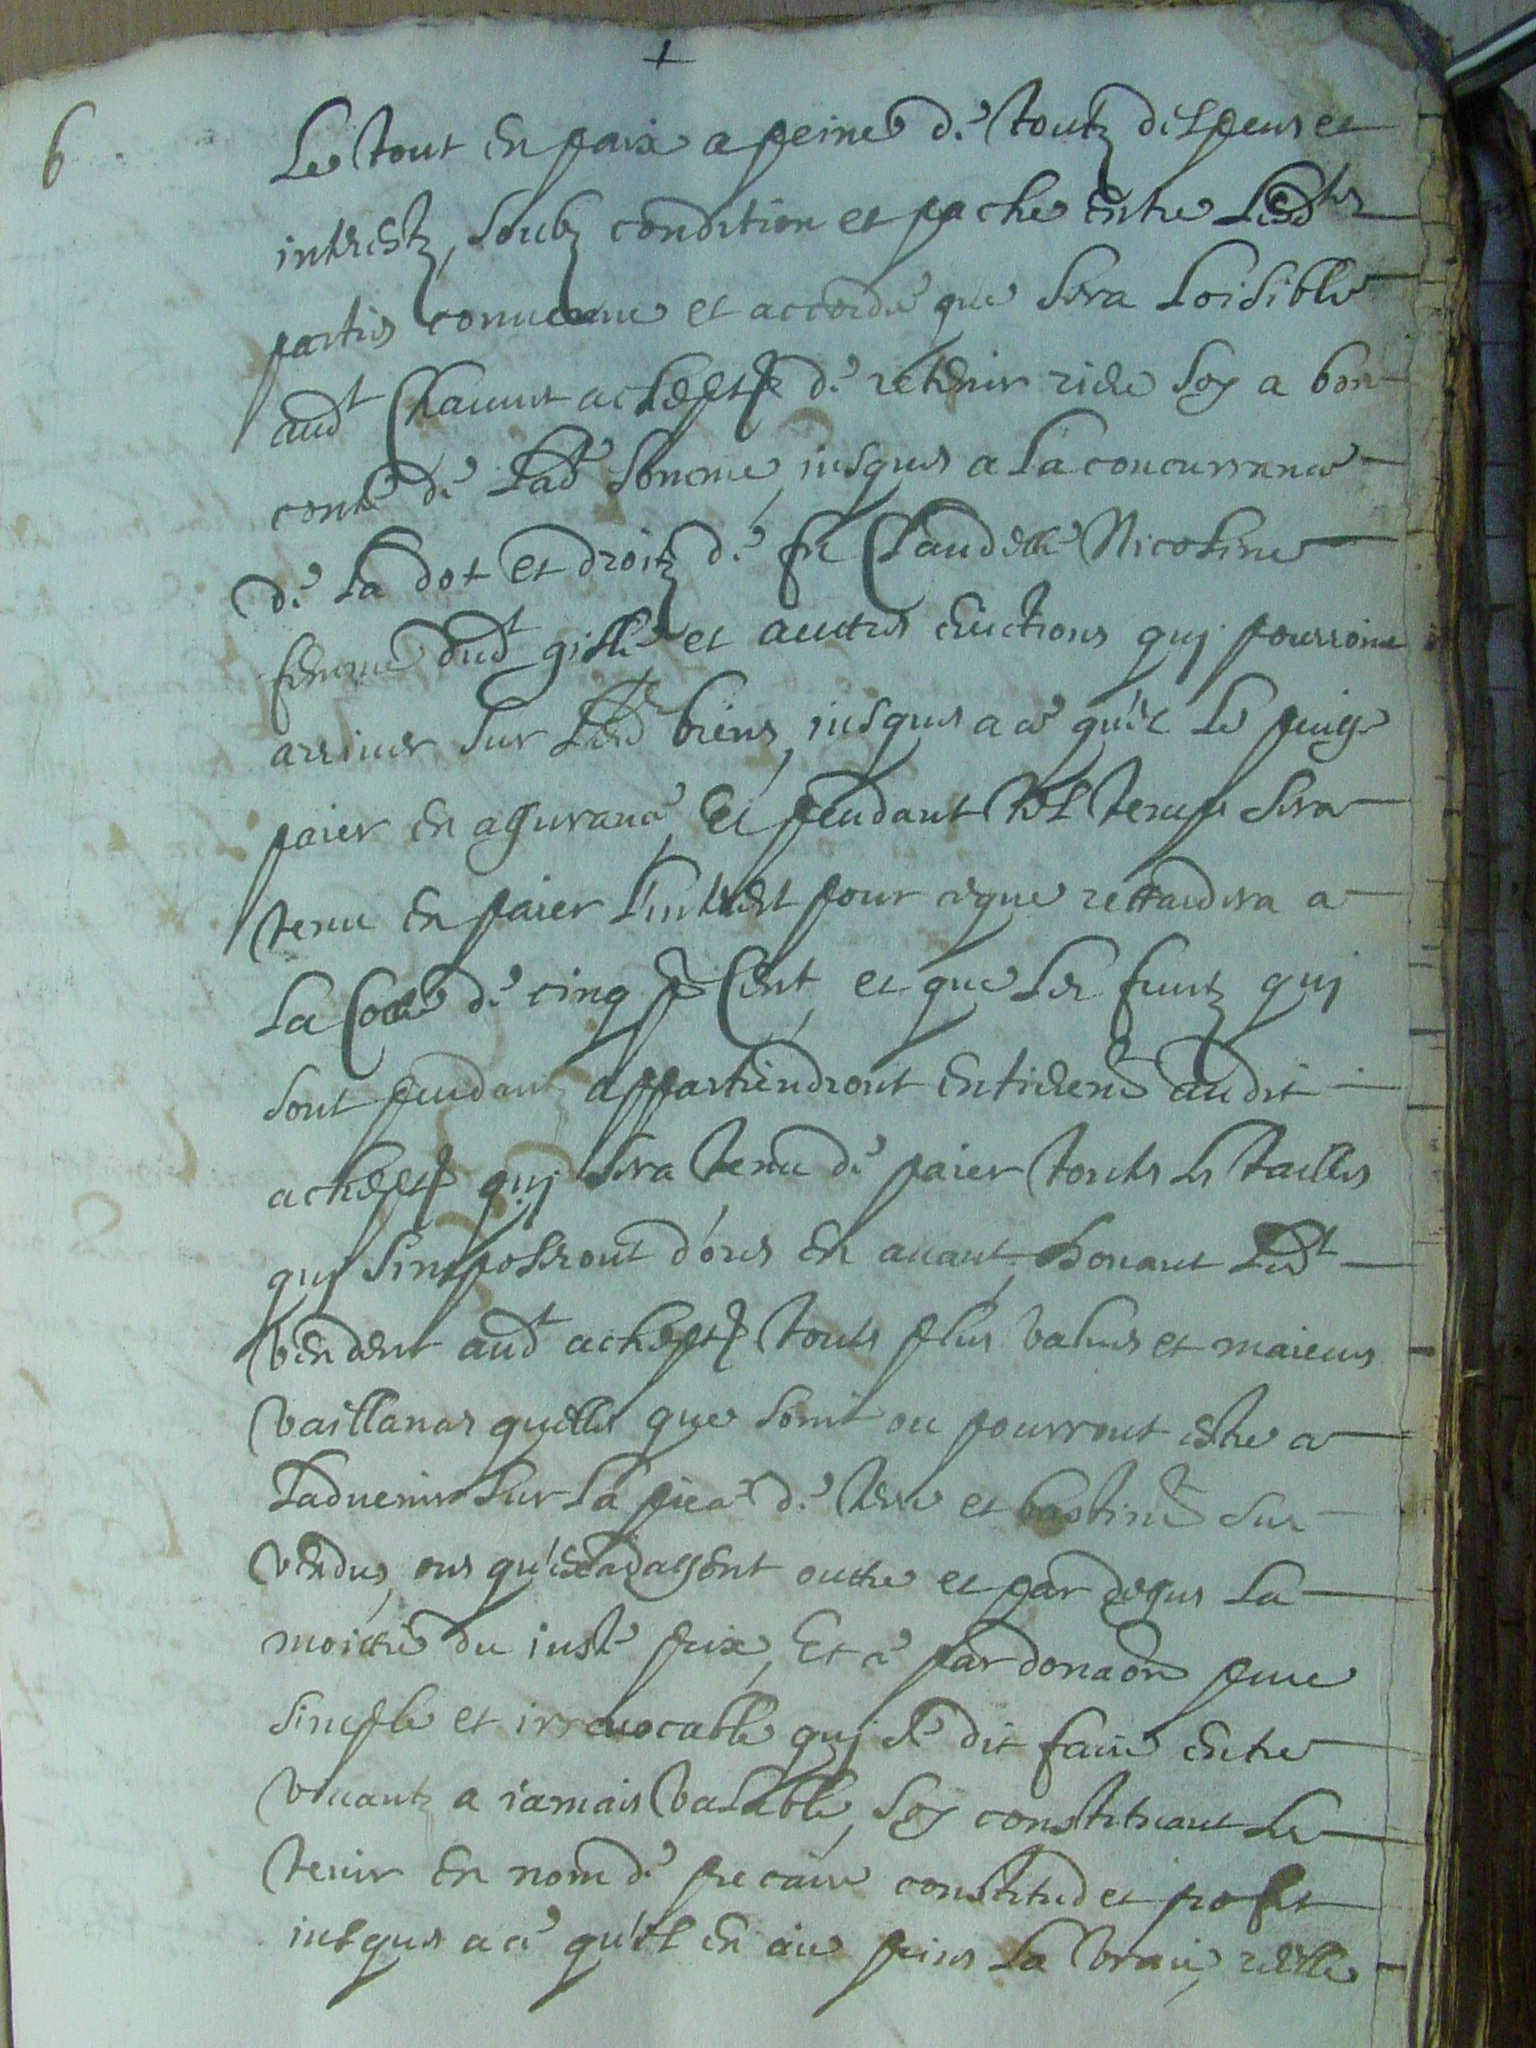 +
6
Le tout en paix a peine de toutz despens et
intrestz, soubz condition et pache entre lesd.tes
parties convenue et accordé que sera loisible
aud.t achept.r de retenir riere soy a bon
conte de lad.te somme, jusques a la concurrance
de la dot et droitz de fu Claudette Nicoline
femme dud.t gille et autres evictions quj pourroint
arriver sur lesd.tz biens, jusques a ce qu'il le puisse
paier en assurance, Et pendant tel temps sera
tenu en paier l'intrest pour ce que restaudera a
la cotte de cinq p.r Cent, et que les fruitz quj
sont pendantz appartiendront entierem.t audit
achept.r quj sera tenu de paier toutes les tailles
quj s'imposeront d'ores en avant, Donant led.t
vendeur aud.t achept.r toute plus values et maieurs
vaillances quelles que soint ou pourront estre a
l'advenir sur la piece de terre et bastim.t sus
vendus, ores qu'excedassent outre et par dessus la
moitié du juste prix, Et ce par donaon pure
simple et irrevocable quj se dit faite entre
vivantz a jamais valable, soy constituant le
tenir en nom de precaire constitud et profit
jusques a ce qu'il en aie prins la vraie, réelle